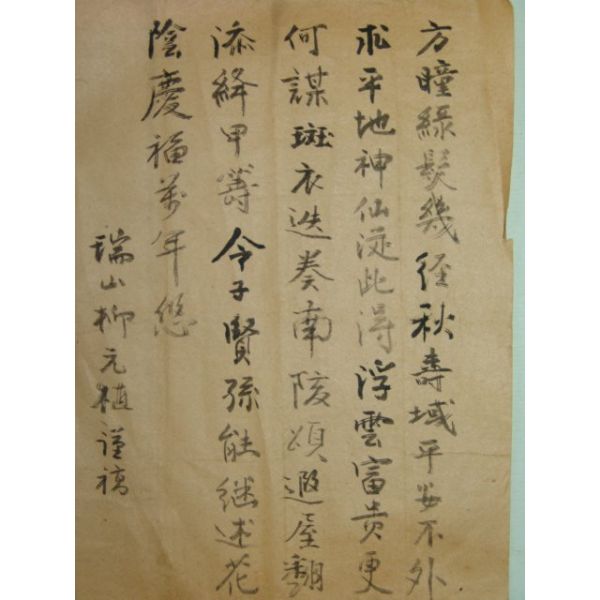 方瞳綠髮幾經秋壽域平安不外
求平地神仙從此得浮雲富貴更
何謀斑衣迭奏南陔頌遐屋翻
添絳甲籌令子賢孫能繼述花
陰慶福萬年悠
瑞山柳元植謹稿